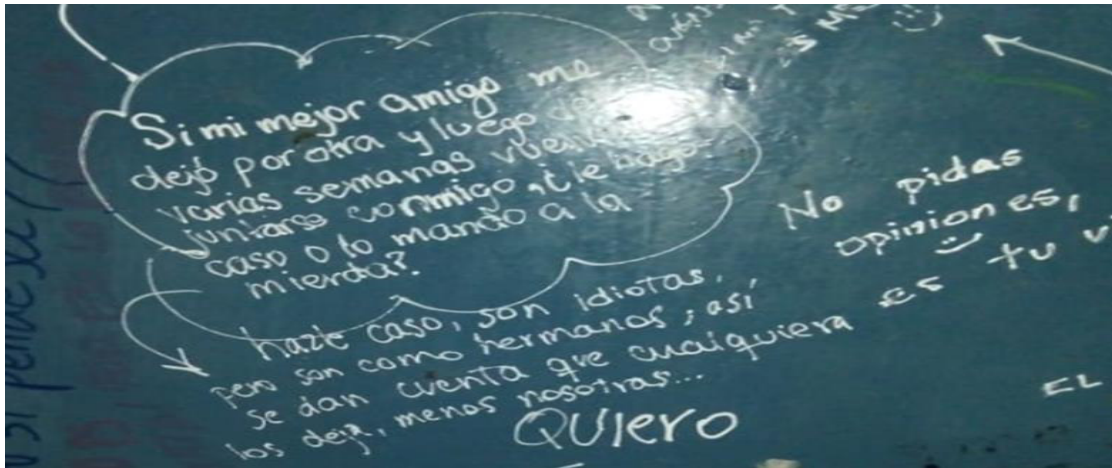 Si mi mejor amigo me
dejó por otra y luego de
varias semanas vuelve
juntarse conmigo, ¿le hago
caso o lo mando a la
mierda?
hazle caso, son idiotas,
pero son como hermanos, así
se dan cuenta que cualquiera
los deja, menos nosotras...
No pidas
opiniones,
es tu
QUIERO
EL